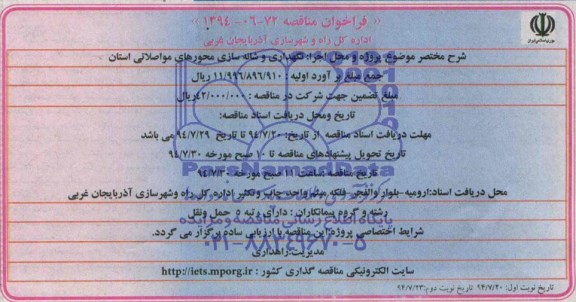 « فراخوان مناقصه ۷۲-۰۶-۱۳۹۴ »
اداره کل راه و شهرسازی آذربایجان غربی
شرح مختصر موضوع، پروژه و محل اجرا: نگهداری و شانه سازی محورهای مواصلاتی استان
جمع مبلغ بر آورد اولیه : ۱۱/۹۹۶/۸۹۶/۹۱۰ ریال
مبلغ تضمین جهت شرکت در مناقصه : ۴۲/۰۰۰/۰۰۰ریال
تاریخ ومحل دریافت اسناد مناقصه:
مهلت دریافت اسناد مناقصه از تاریخ: ۹۴/۷/۲۰ تا تاریخ ۹۴/۷/۲۹ می باشد
تاریخ تحویل پیشنهادهای مناقصه تا ۱۰ صبح مورخه ۹۴/۷/۳۰
تاریخ مناقصه ساعت ۱۱ صبح مورخه ۹۴/۷/۳۰
ParsNamadData
محل دریافت اسناد:ارومیه -بلوار والفجر- فلکه میثم واحد چاپ وتکثیر اداره کل راه وشهرسازی آذربایجان غربی
رشته و گروه پیمانکاران : دارای رتبه ۵ حمل ونقل
پایگاه اطلاع رسانی مناقصه و مزایده
شرایط اختصاصی پروژه:این مناقصه با ارزیابی ساده برگزار می گردد.
۰۲۱-۸۸۳۴۹۶۷۰-۵
مدیریت:راهداری
سایت الکترونیکی مناقصه گذاری کشور : http://iets.mporg.ir
تاریخ نوبت اول: ۹۴/۷/۲۰ تاریخ نوبت دوم:۹۴/۷/۲۳